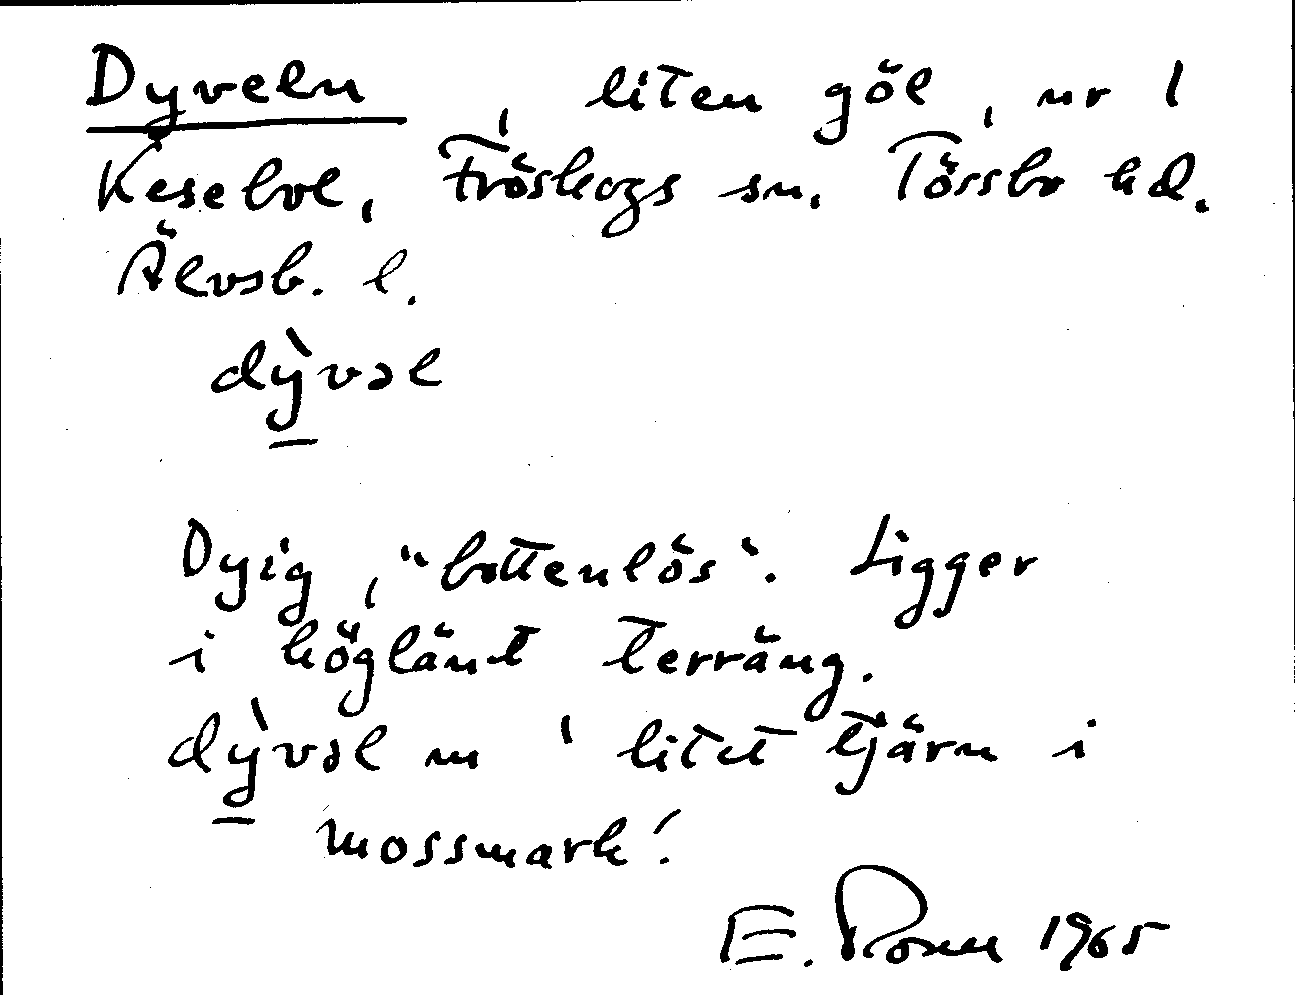 Dyveln, liten göl, nr 1
Kesebol, Fröskogs sn. Tössbo hd.
Älvsb. l.
dỳvəl
Dyig, "bottenlös". Ligger
i höglänt terräng.
dỳvəl m ' litet tjärn i
mossmark'.
E. 1965